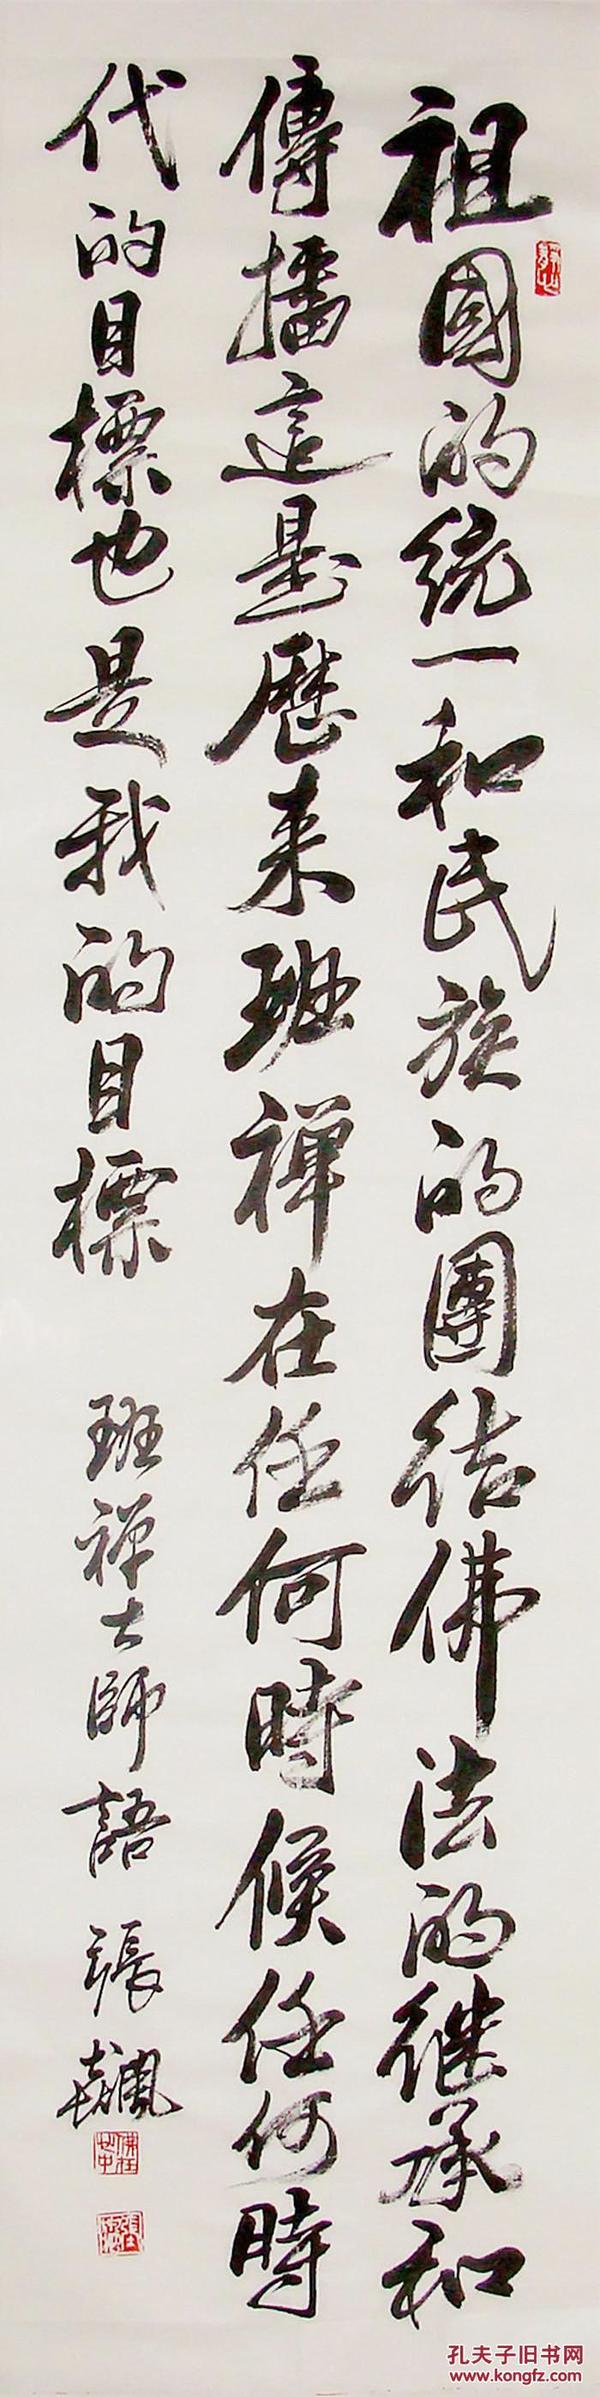 祖國的統一和民族的團结佛法的继承和
傳播這是歷来班禅在任何時候任何時
代的目標也是我的目標
班禅大師語 張飆
孔夫子旧书网
www.kongfz.com